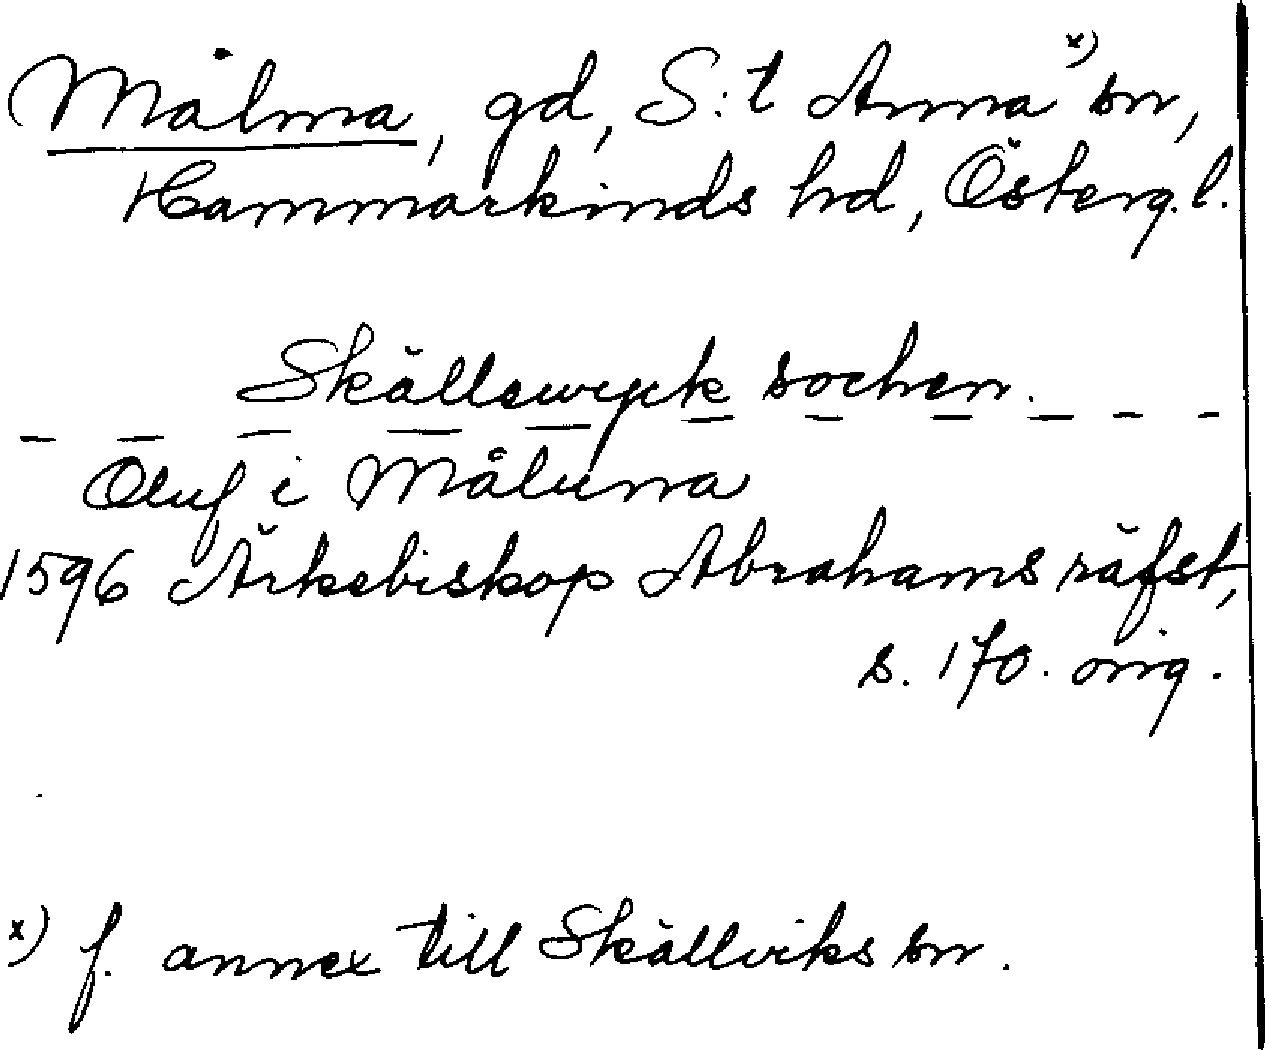 Målma, gd, S:t Anna x) sn,
Hammarkinds hd, Österg.l.
Skällewyck sochen.
Oluf i Målunna
1596 Ärkebiskop Abrahams räfst,
s. 170. orig.
x) f. annex till Skällviks sn.